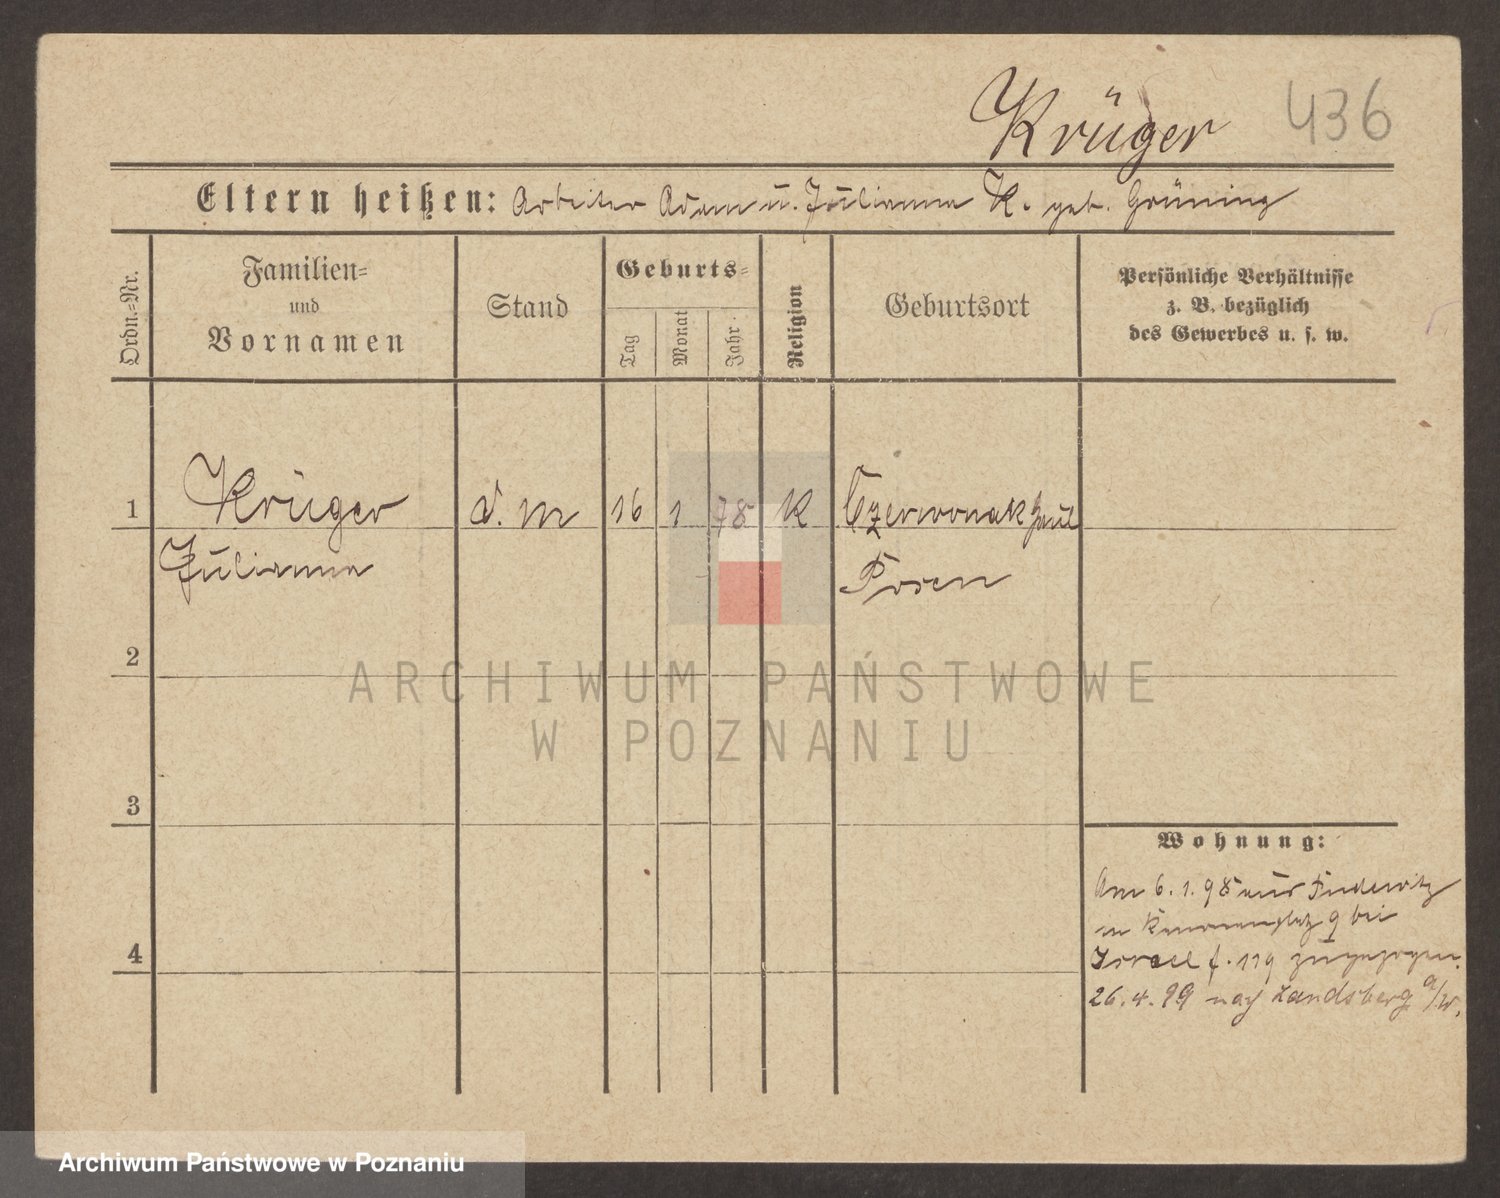 Krüger 436
Eltern heißen: Arbeiter Adam u. Julianna K. geb. Grüning
Ordn.-Nr.
Familien-
und
Vornamen
Stand
Geburts-
Tag
Monat
Jahr
Religion
Geburtsort
Persönliche Verhältnisse
z. B. bezüglich
des Gewerbes u. s. w.
1 Krüger d. m 16 1 78 K Czerwonak
Julianna Posen
2
3
4
Wohnung:
Am 6. 1. 98 aus
9 bei
Israel f. 119 zugezogen.
26. 4. 99 nach Landsberg a/W.
ARCHIWUM PAŃSTWOWE
W POZNANIU
Archiwum Państwowe w Poznaniu